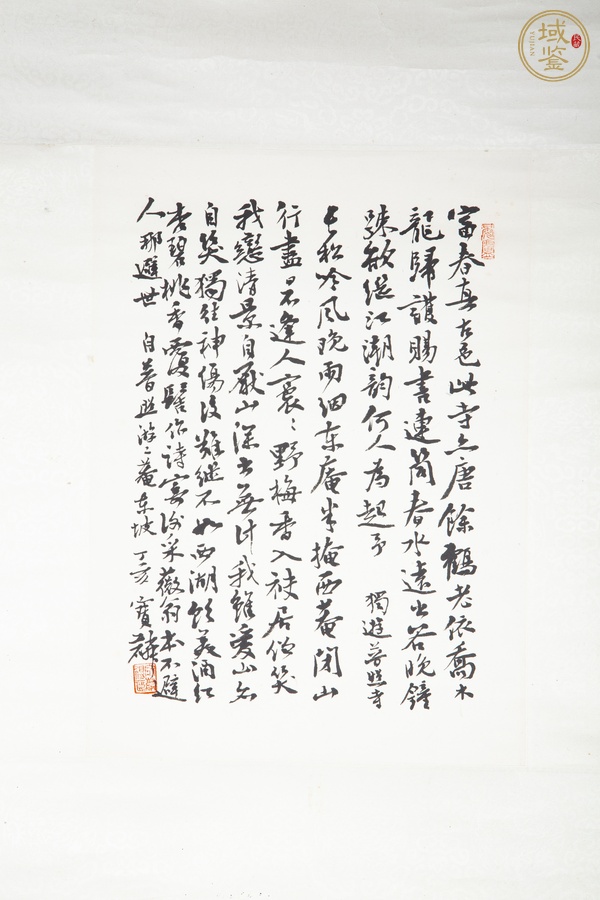 富春真古邑此寺亦唐餘鶴老依喬木
龍歸護賜書連筒春水遠出谷晚鐘
疎欲繼江潮韻何人為起予 獨遊普照寺
長松吟風晚雨細東庵半掩西菴閉山
行盡日不逢人裛〻野梅香入袂居僧笑
我戀清景自厭山深出無計我雖愛山亦
自笑獨往神傷後難繼不如西湖飲美酒紅
杏碧桃香覆髻作詩寄謝采薇翁本不避
人那避世 自普照游二菴東坡 丁亥 寶
域鉴
YUJIAN